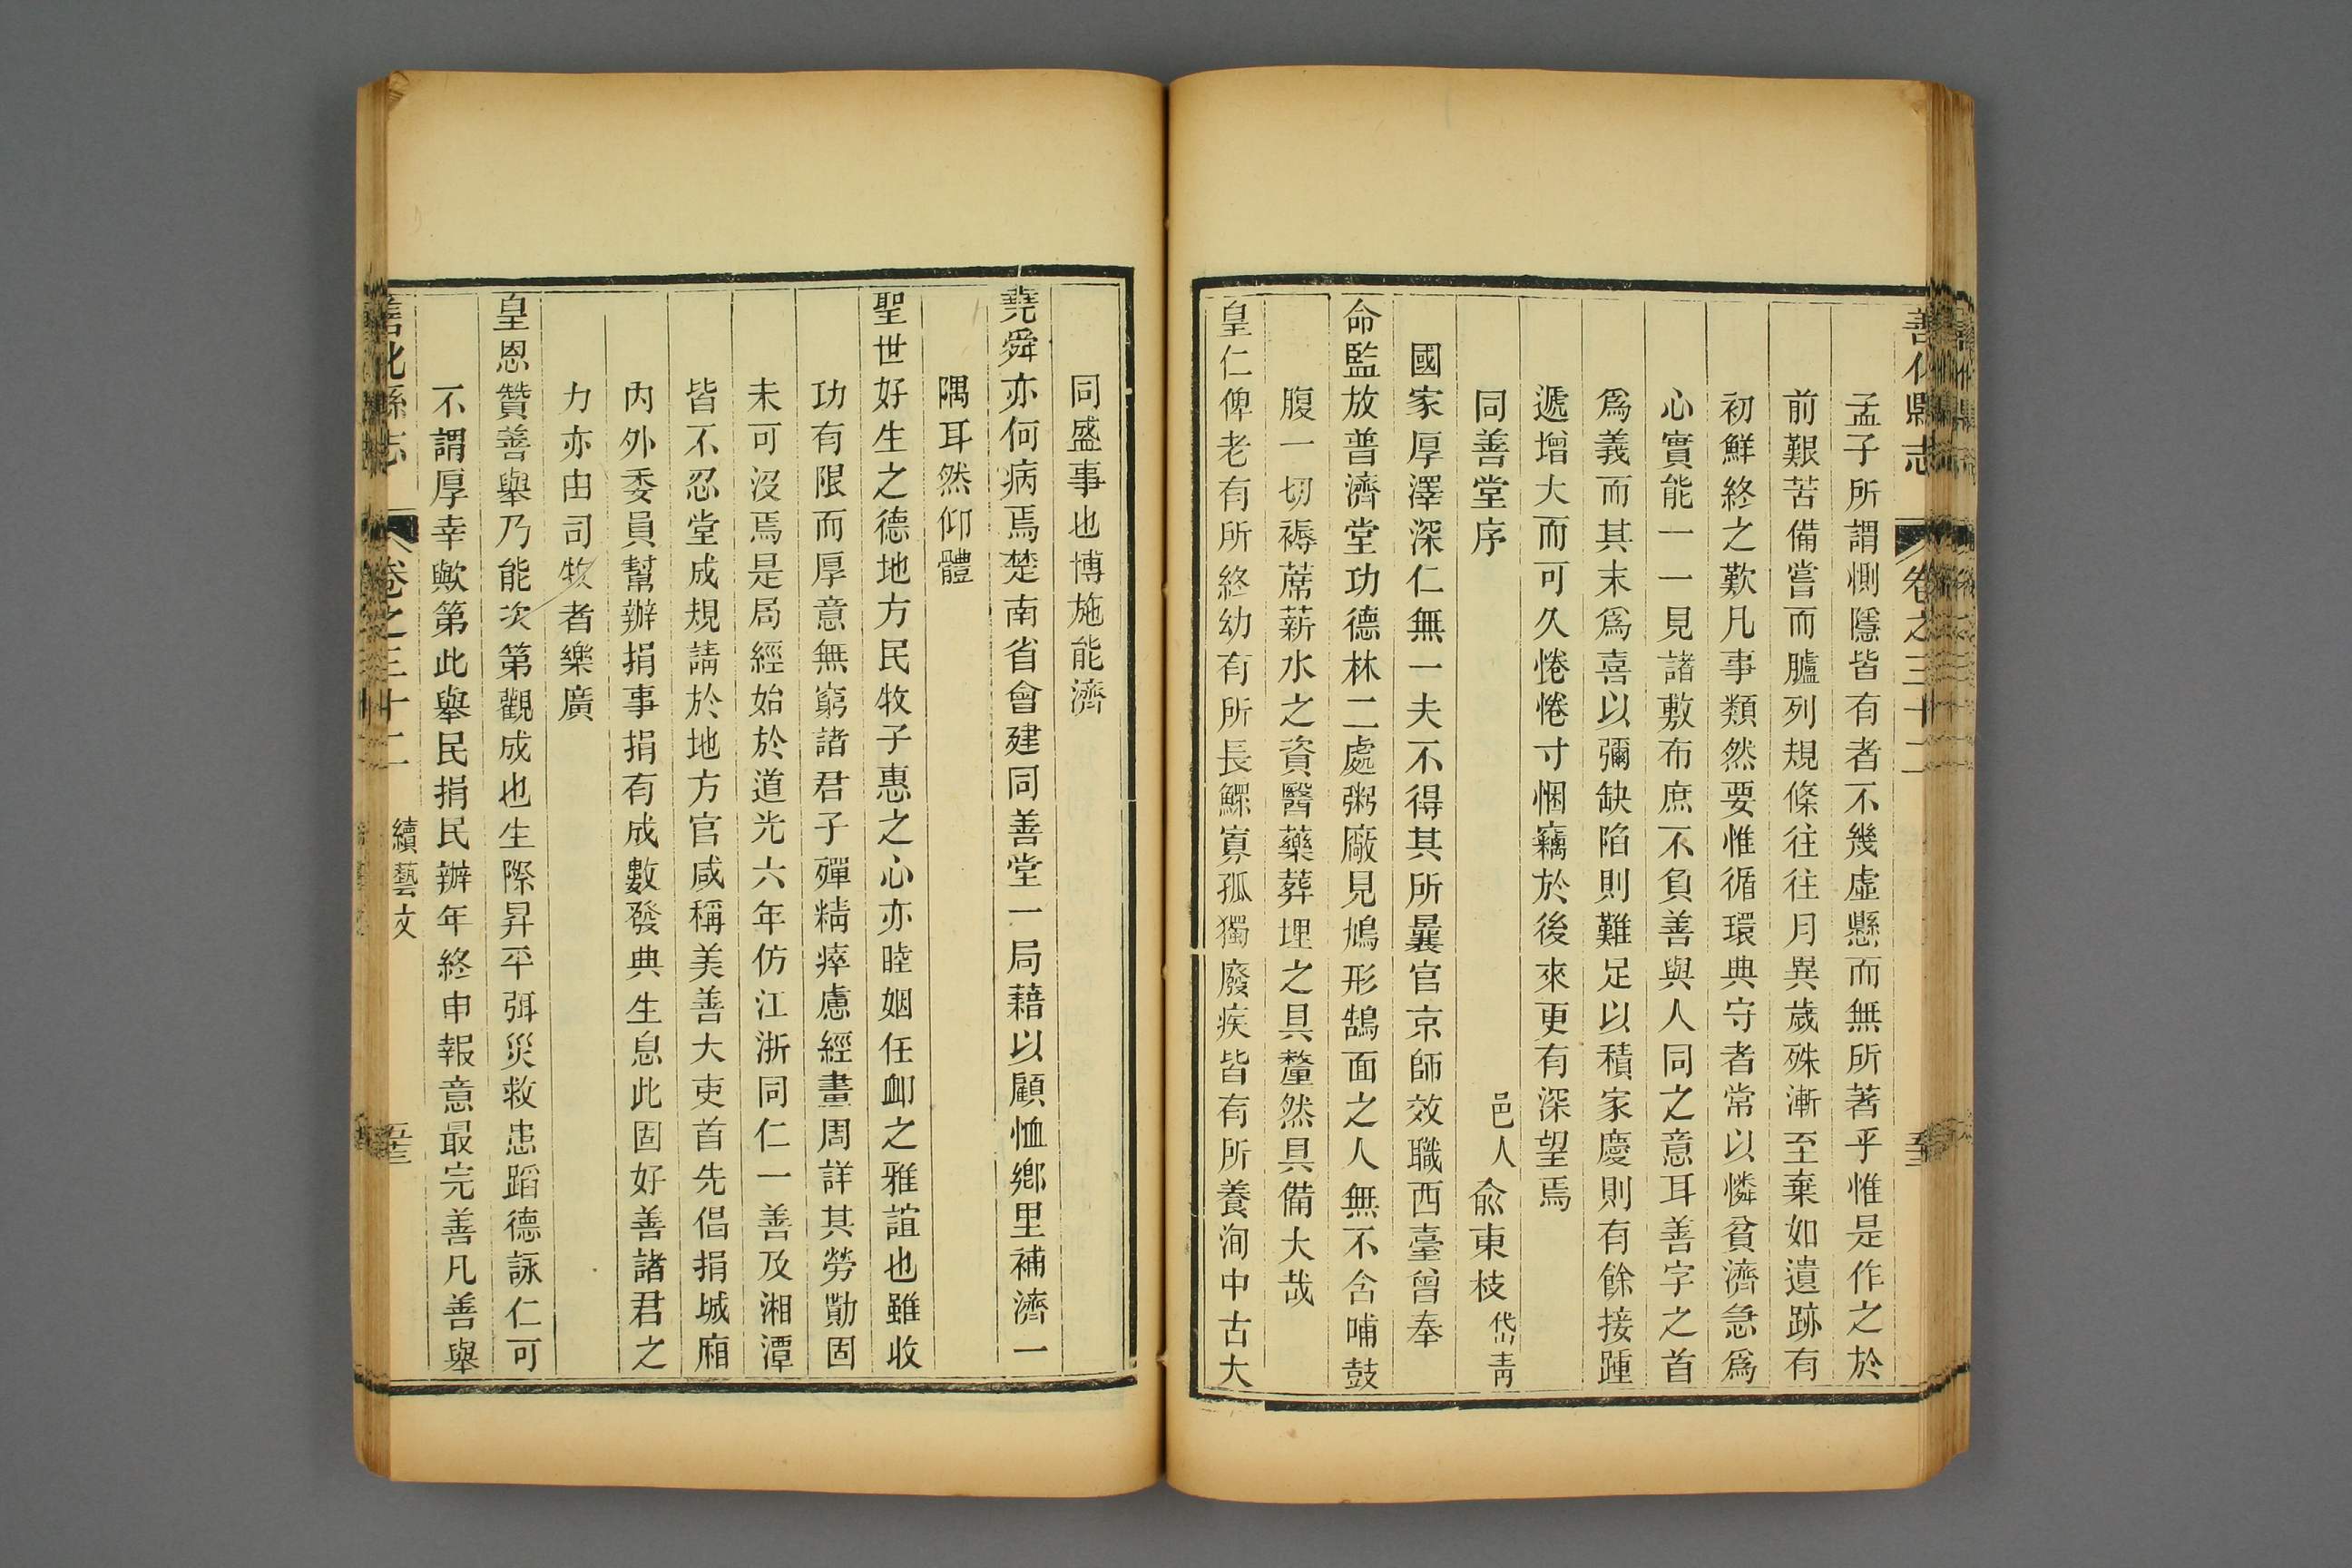 善化縣志 卷之三十二
孟子所謂惻隱皆有者不幾虛懸而無所著乎惟是作之於
前艱苦備嘗而臚列規條往往月異歲殊漸至棄如遺跡有
初鮮終之歎凡事類然要惟循環典守者常以憐貧濟急爲
心實能一一見諸敷布庶不負善與人同之意耳善字之首
爲義而其末爲喜以彌缺陷則難足以積家慶則有餘接踵
遞增大而可久惓惓寸悃竊於後來更有深望焉
同善堂序 邑人俞東枝岱青
國家厚澤深仁無一夫不得其所曩官京師效職西臺曾奉
命監放普濟堂功德林二處粥廠見鳩形鵠面之人無不含哺鼓
腹一切褥蓆薪水之資醫藥葬埋之具釐然具備大哉
皇仁俾老有所終幼有所長鰥寡孤獨廢疾皆有所養洵中古大
同盛事也博施能濟
堯舜亦何病焉楚南省會建同善堂一局藉以顧恤鄉里補濟一
隅耳然仰體
聖世好生之德地方民牧子惠之心亦睦姻任卹之雅誼也雖收
功有限而厚意無窮諸君子殫精瘁慮經畫周詳其勞勩固
未可沒焉是局經始於道光六年仿江浙同仁一善及湘潭
皆不忍堂成規請於地方官咸稱美善大吏首先倡捐城廂
內外委員幫辦捐事捐有成數發典生息此固好善諸君之
力亦由司牧者樂廣
皇恩贊善舉乃能次第觀成也生際昇平弭災救患蹈德詠仁可
不謂厚幸歟第此舉民捐民辦年終申報意最完善凡善舉
善化縣志 卷之三十二 續藝文